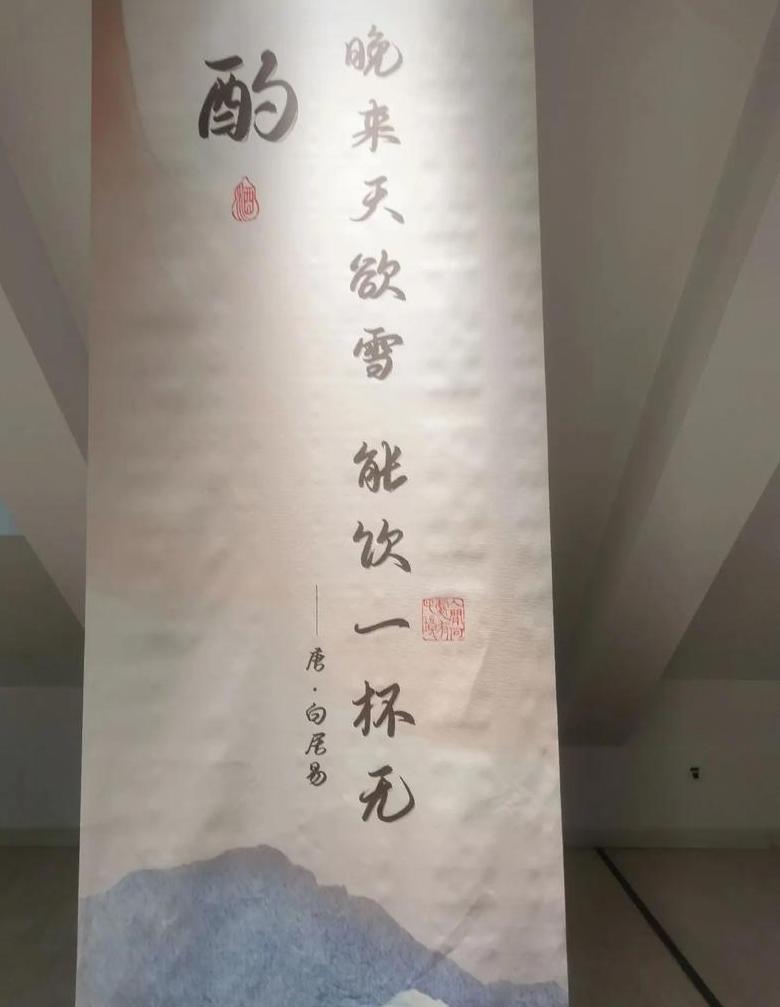 晚来天欲雪 能饮一杯无
——唐·白居易
酌
酒